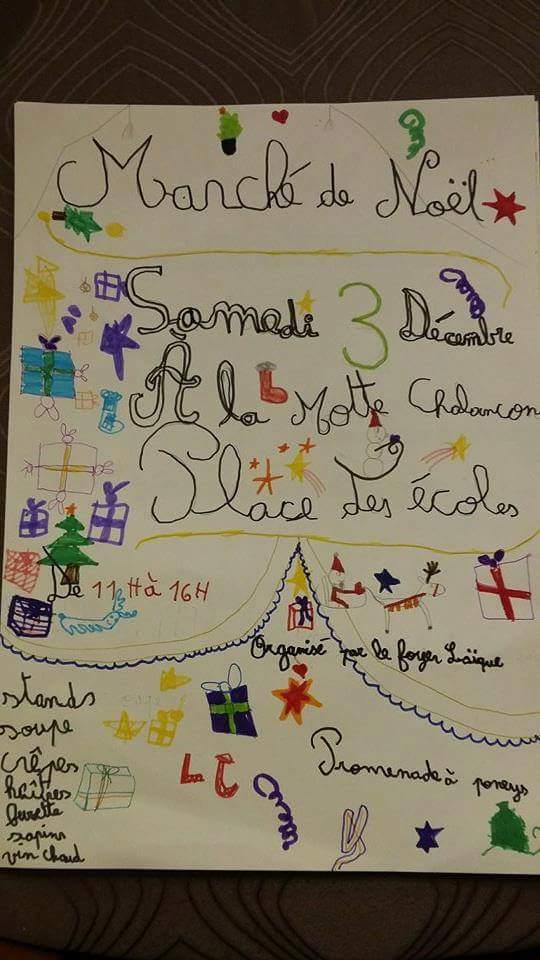 Marché de Noël
Samedi 3 Décembre
À la Motte Chalancon
Place des écoles
De 11H à 16H
Organisé par le foyer Laïque
stands
soupe
crêpes
huîtres
buvette
sapins
vin chaud
Promenade à poneys